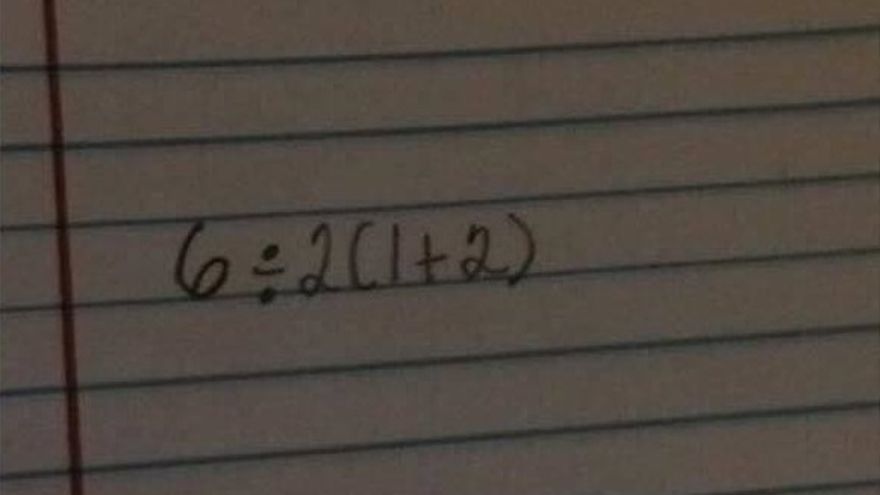 6÷2(1+2)